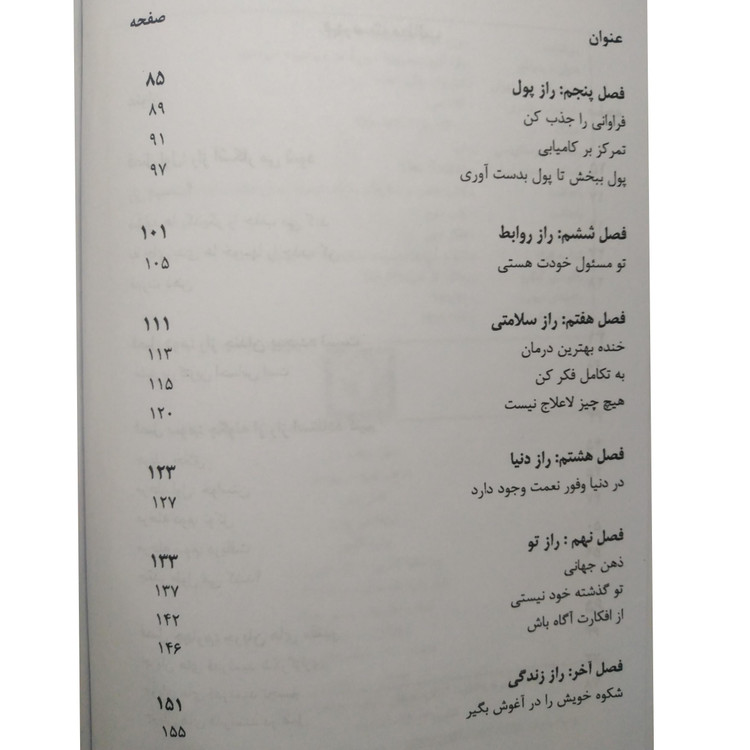 عنوان صفحه
فصل پنجم: راز پول ۸۵
فراوانی را جذب کن ۸۹
تمرکز بر کامیابی ۹۱
پول ببخش تا پول بدست آوری ۹۷
فصل ششم: راز روابط ۱۰۱
تو مسئول خودت هستی ۱۰۵
فصل هفتم: راز سلامتی ۱۱۱
خنده بهترین درمان ۱۱۳
به تکامل فکر کن ۱۱۵
هیچ چیز لاعلاج نیست ۱۲۰
فصل هشتم: راز دنیا ۱۲۳
در دنیا وفور نعمت وجود دارد ۱۲۷
فصل نهم : راز تو ۱۳۳
ذهن جهانی ۱۳۷
تو گذشته خود نیستی ۱۴۲
از افکارت آگاه باش ۱۴۶
فصل آخر: راز زندگی ۱۵۱
شکوه خویش را در آغوش بگیر ۱۵۵